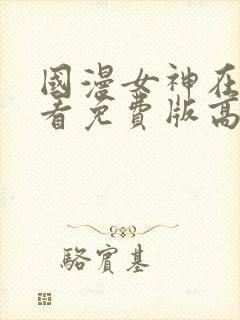 國漫女神在
看免費版高
駱賓基